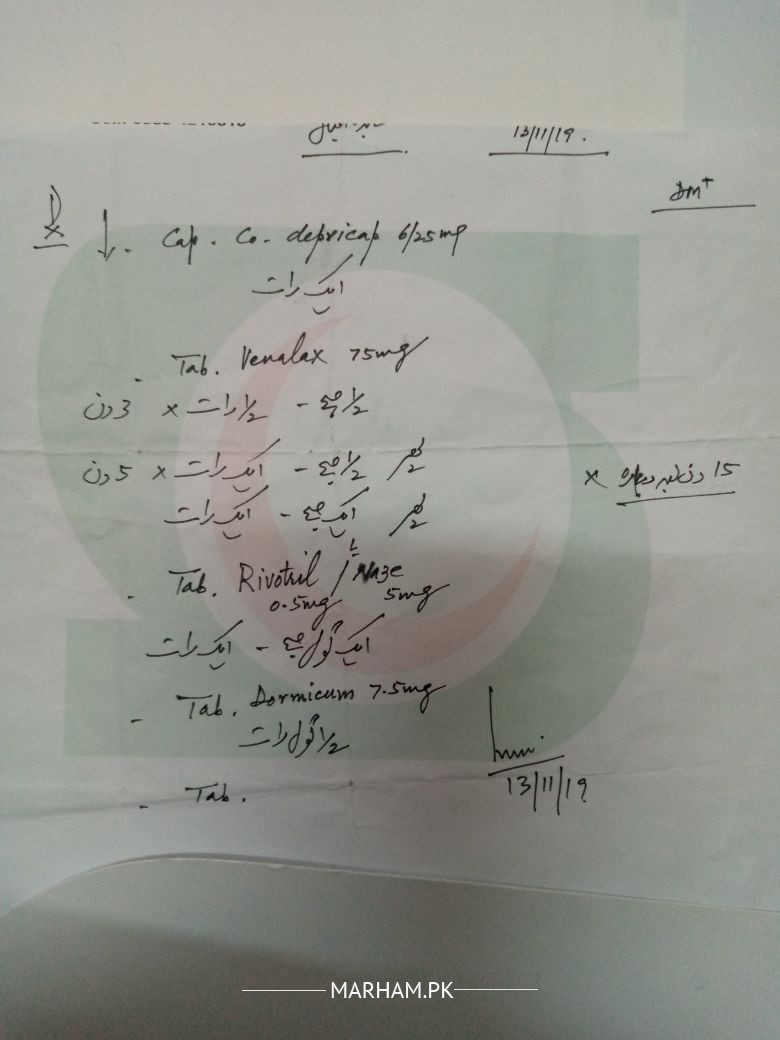 13/11/19.
DM+
Rx
Cap. Co. depricap 6/25mg
ایک رات
- Tab. Venalax 75mg
1/2 صبح - 1/2 رات × 3 دن
پھر 1/2 صبح - ایک رات × 5 دن
پھر ایک صبح - ایک رات
15 دن ×
- Tab. Rivotril / یا Naze
0.5mg 5mg
ایک گولی صبح - ایک رات
- Tab. Dormicum 7.5mg
1/2 گولی رات
13/11/19
- Tab.
MARHAM.PK